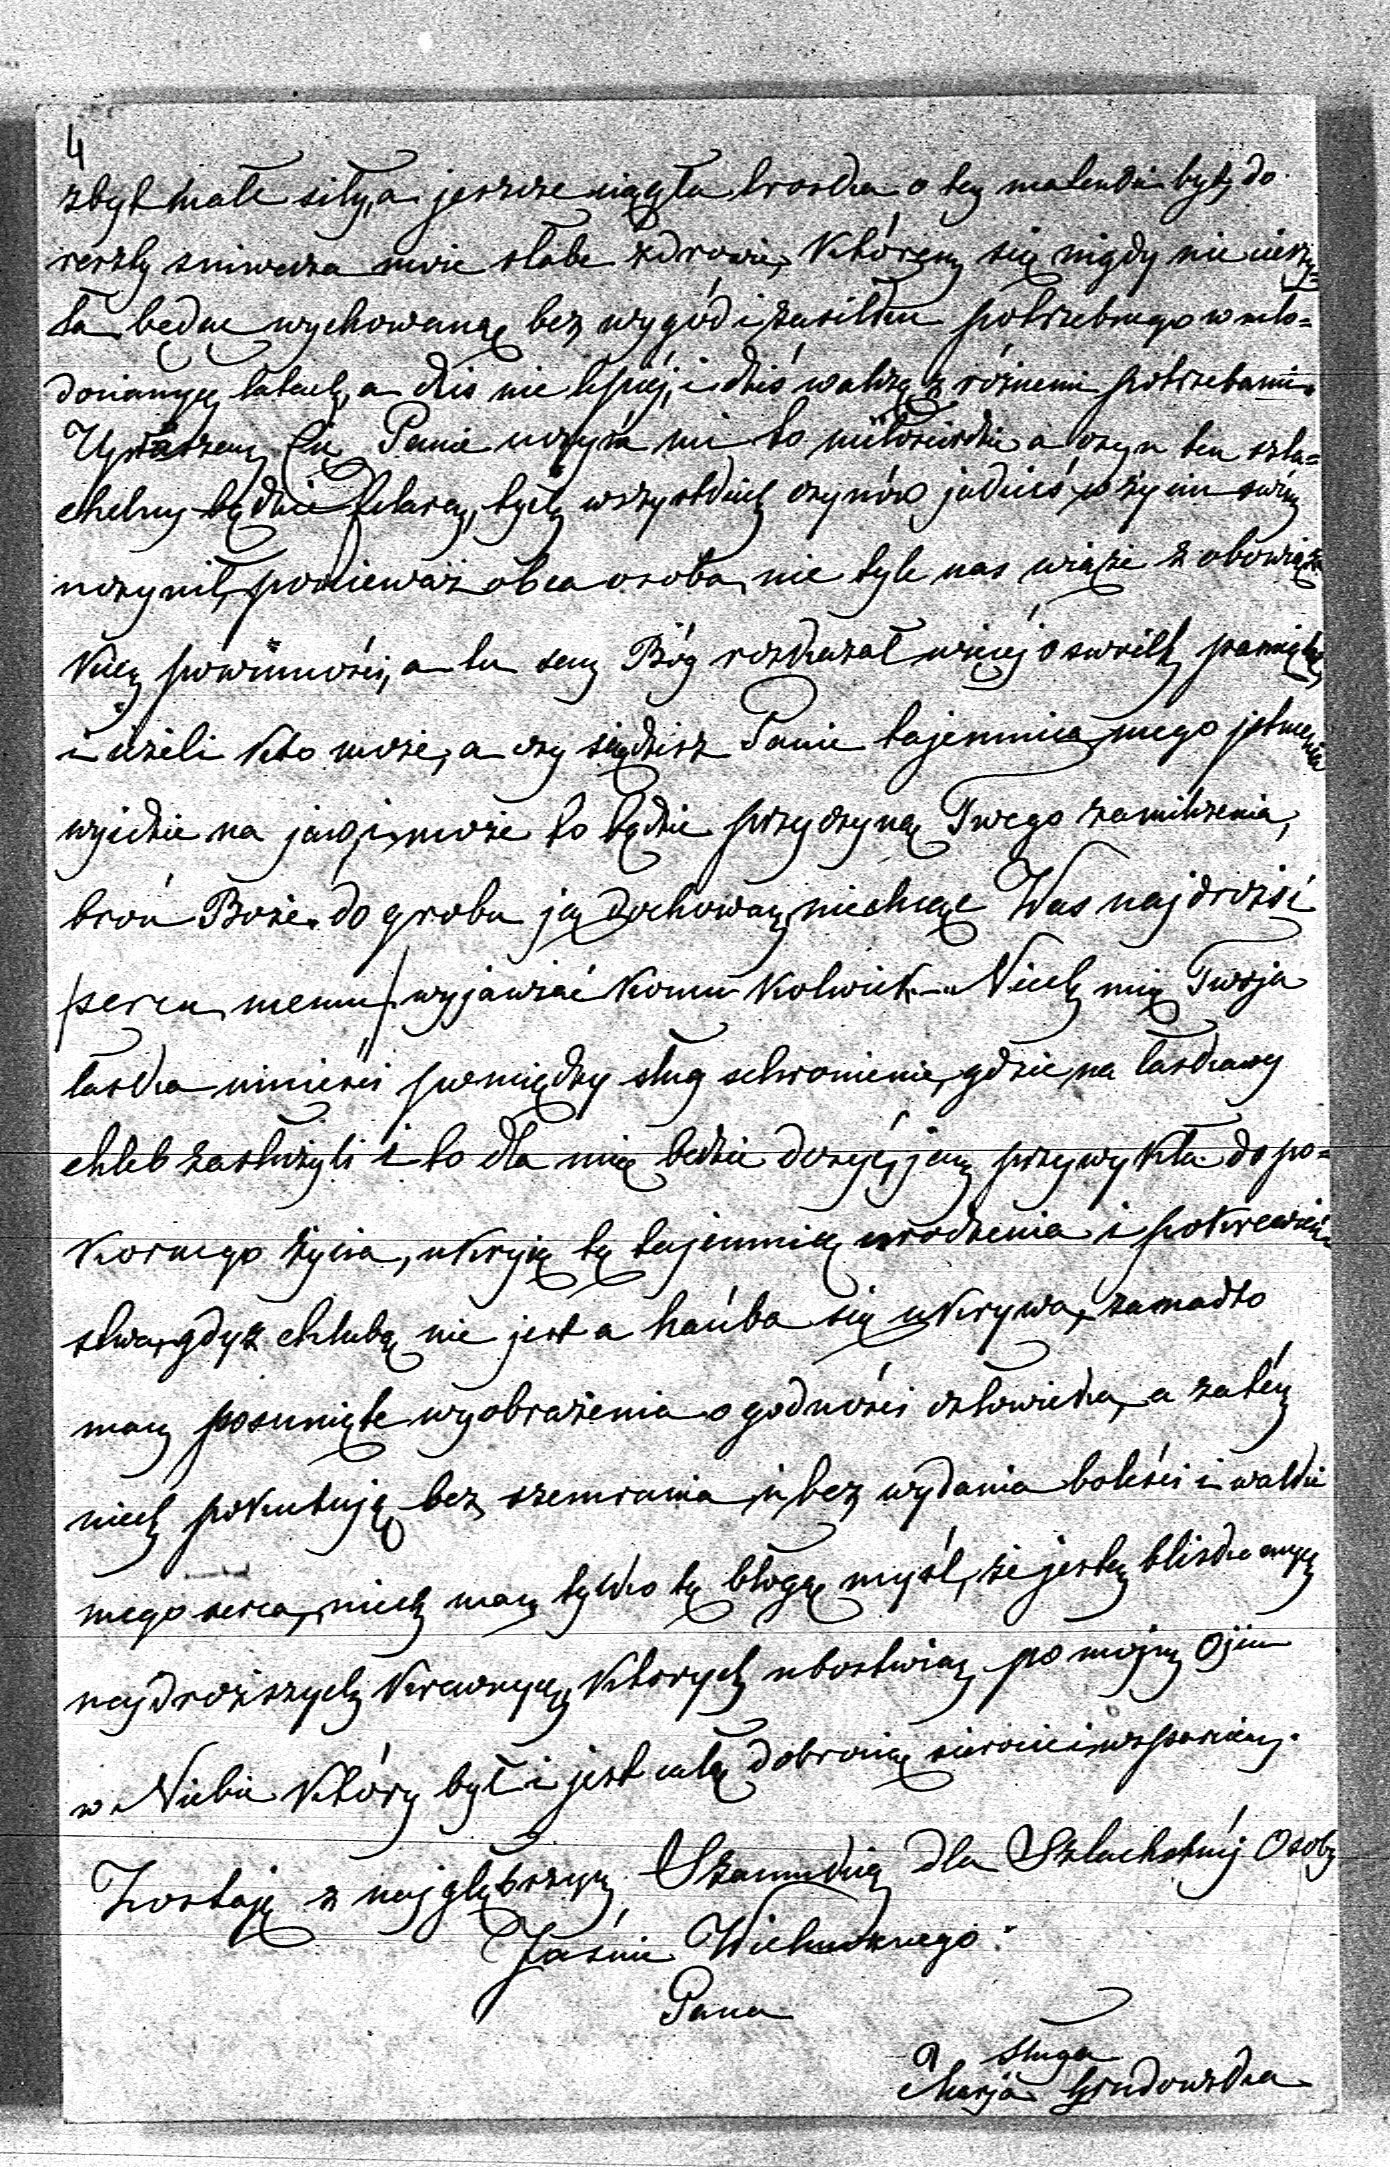 4
zbyt małe siły, a jeszcze ciągła troska o tem maleństwie były do
reszty zniwecza moie słabe zdrowie, którem się nigdy nie cieszy=
ła będąc wychowaną bez wygód i zasiłku potrzebnego w mło=
docianych latach, a dziś nie lepiej, i dziś walczę z różnemi potrzebami.
Upraszam Cię Panie uczyń mi to miłosierdzie a czyn ten szla=
chetny będzie filarem, tych wszystkich czynów jakieś w życiu swém
uczynił, ponieważ obca osoba, nie tyle nas wiąże z obowiąz
kiem powinności, a tu sam Bóg rozkazał więcej o swoich pamiętać,
i jeżeli kto może, a czy sądzisz Panie tajemnica mego
wyjdzie na jaw, i może to będzie przyczyną Twego zamilczenia,
broń Boże. do grobu ją dochowam, niechcąc Was najdrożsi
/sercu memu/ wyjawiać komu kolwiek. — Niech mię Twoja
łaska umieści pomiędzy sług schronienie, gdzie na łaskawy
chleb zasłużyli i to dla mię będzie dosyć, jam przywykła do po=
kornego życia, ukryję tę tajemnicę urodzenia i pokrewień
stwa, gdyż chlubą nie jest a hańba się ukrywa, zanadto
mam posunięte wyobrażenia o godności człowieka, a zatém
niech pokutuję bez szemrania, i bez wydania boleści i walki
mego serca, niech mam tylko tę błogą myśl, że jestem blisko
najdroższych krewnych, których ubóstwiam po mojm Ojcu
w Niebie który był i jest całą dobrocią sierocie i wsparciem.
Zostaję z najgłębszym Szacunkiem dla Szlachetnéj Osoby
Jaśnie Wielmożnego
Pana
sługa
Marja Grudowska